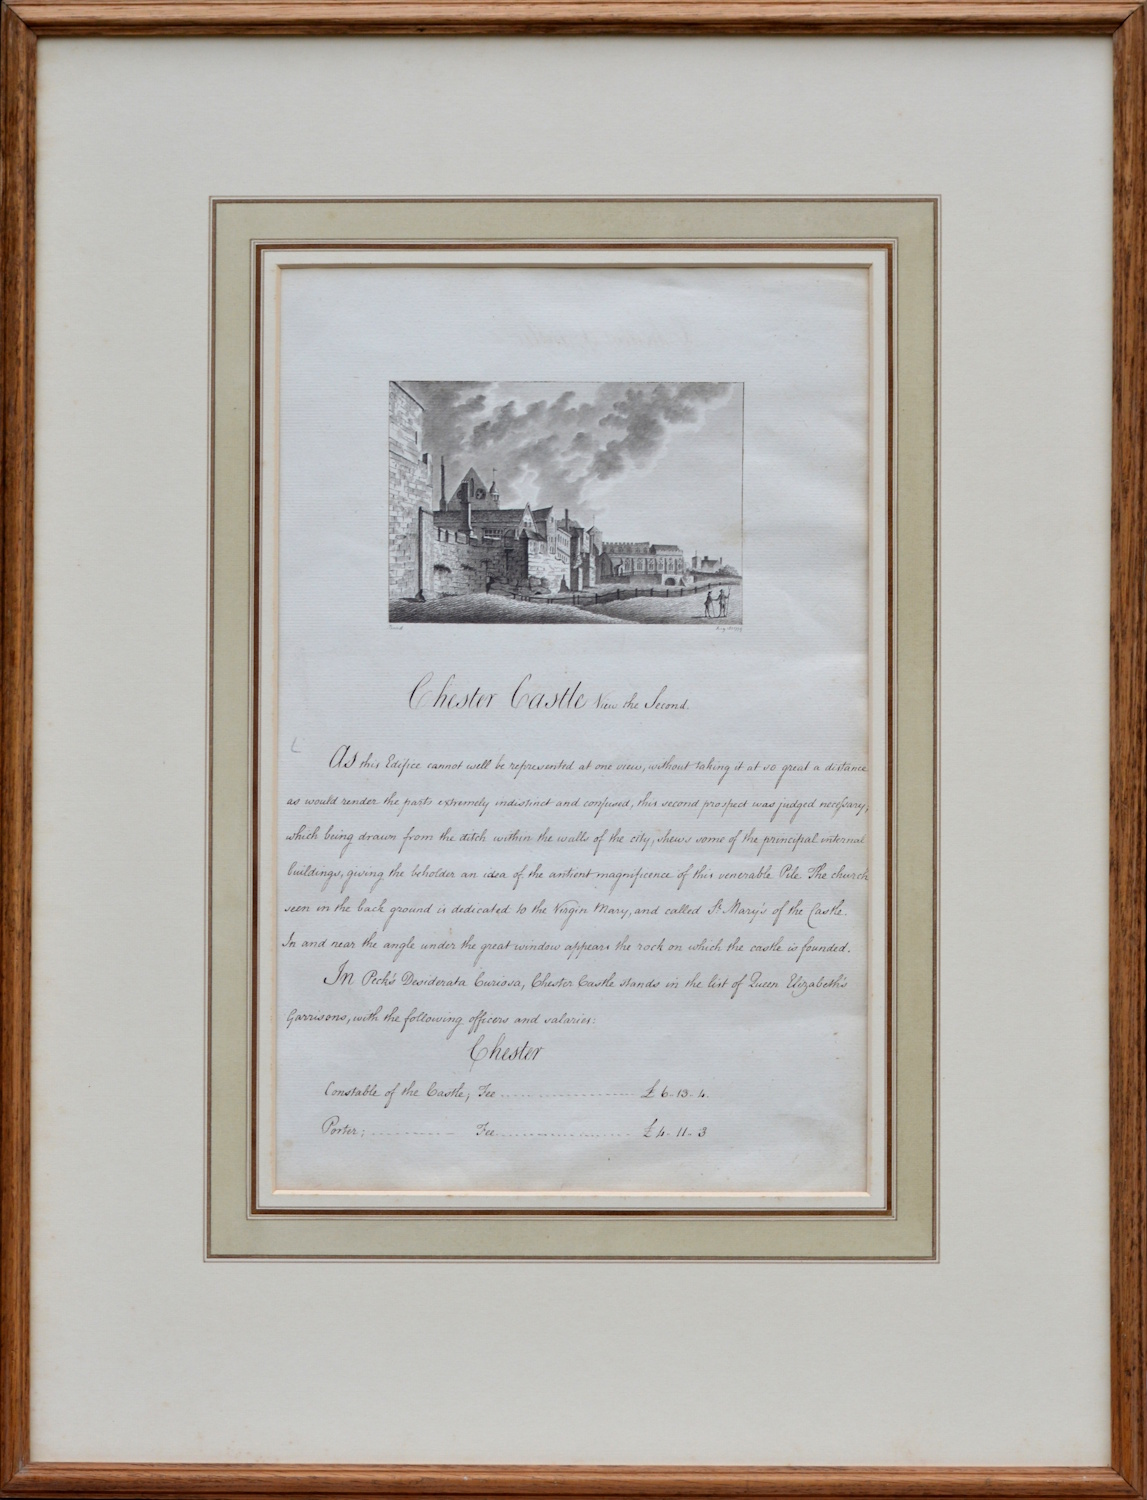 Chester Castle View the Second.
As this Edifice cannot well be represented at one view, without taking it at so great a distance
as would render the parts extremely indistinct and confused, this second prospect was judged necessary;
which being drawn from the ditch within the walls of the city, shews some of the principal internal
buildings, giving the beholder an idea of the antient magnificence of this venerable Pile. The church
seen in the back ground is dedicated to the Virgin Mary, and called St. Mary's of the Castle.
In and near the angle under the great window appears the rock on which the castle is founded.
In Peck's Desiderata Curiosa, Chester Castle stands in the list of Queen Elizabeth's
Garrisons, with the following officers and salaries:
Chester
Constable of the Castle; Fee .................... £ 6-13-4.
Porter; .............. Fee .................... £ 4-11-3